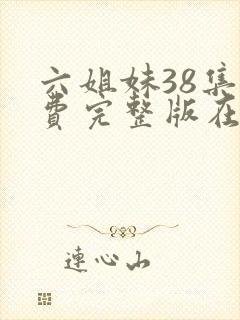 六姐妹38集
费完整版在
连心山